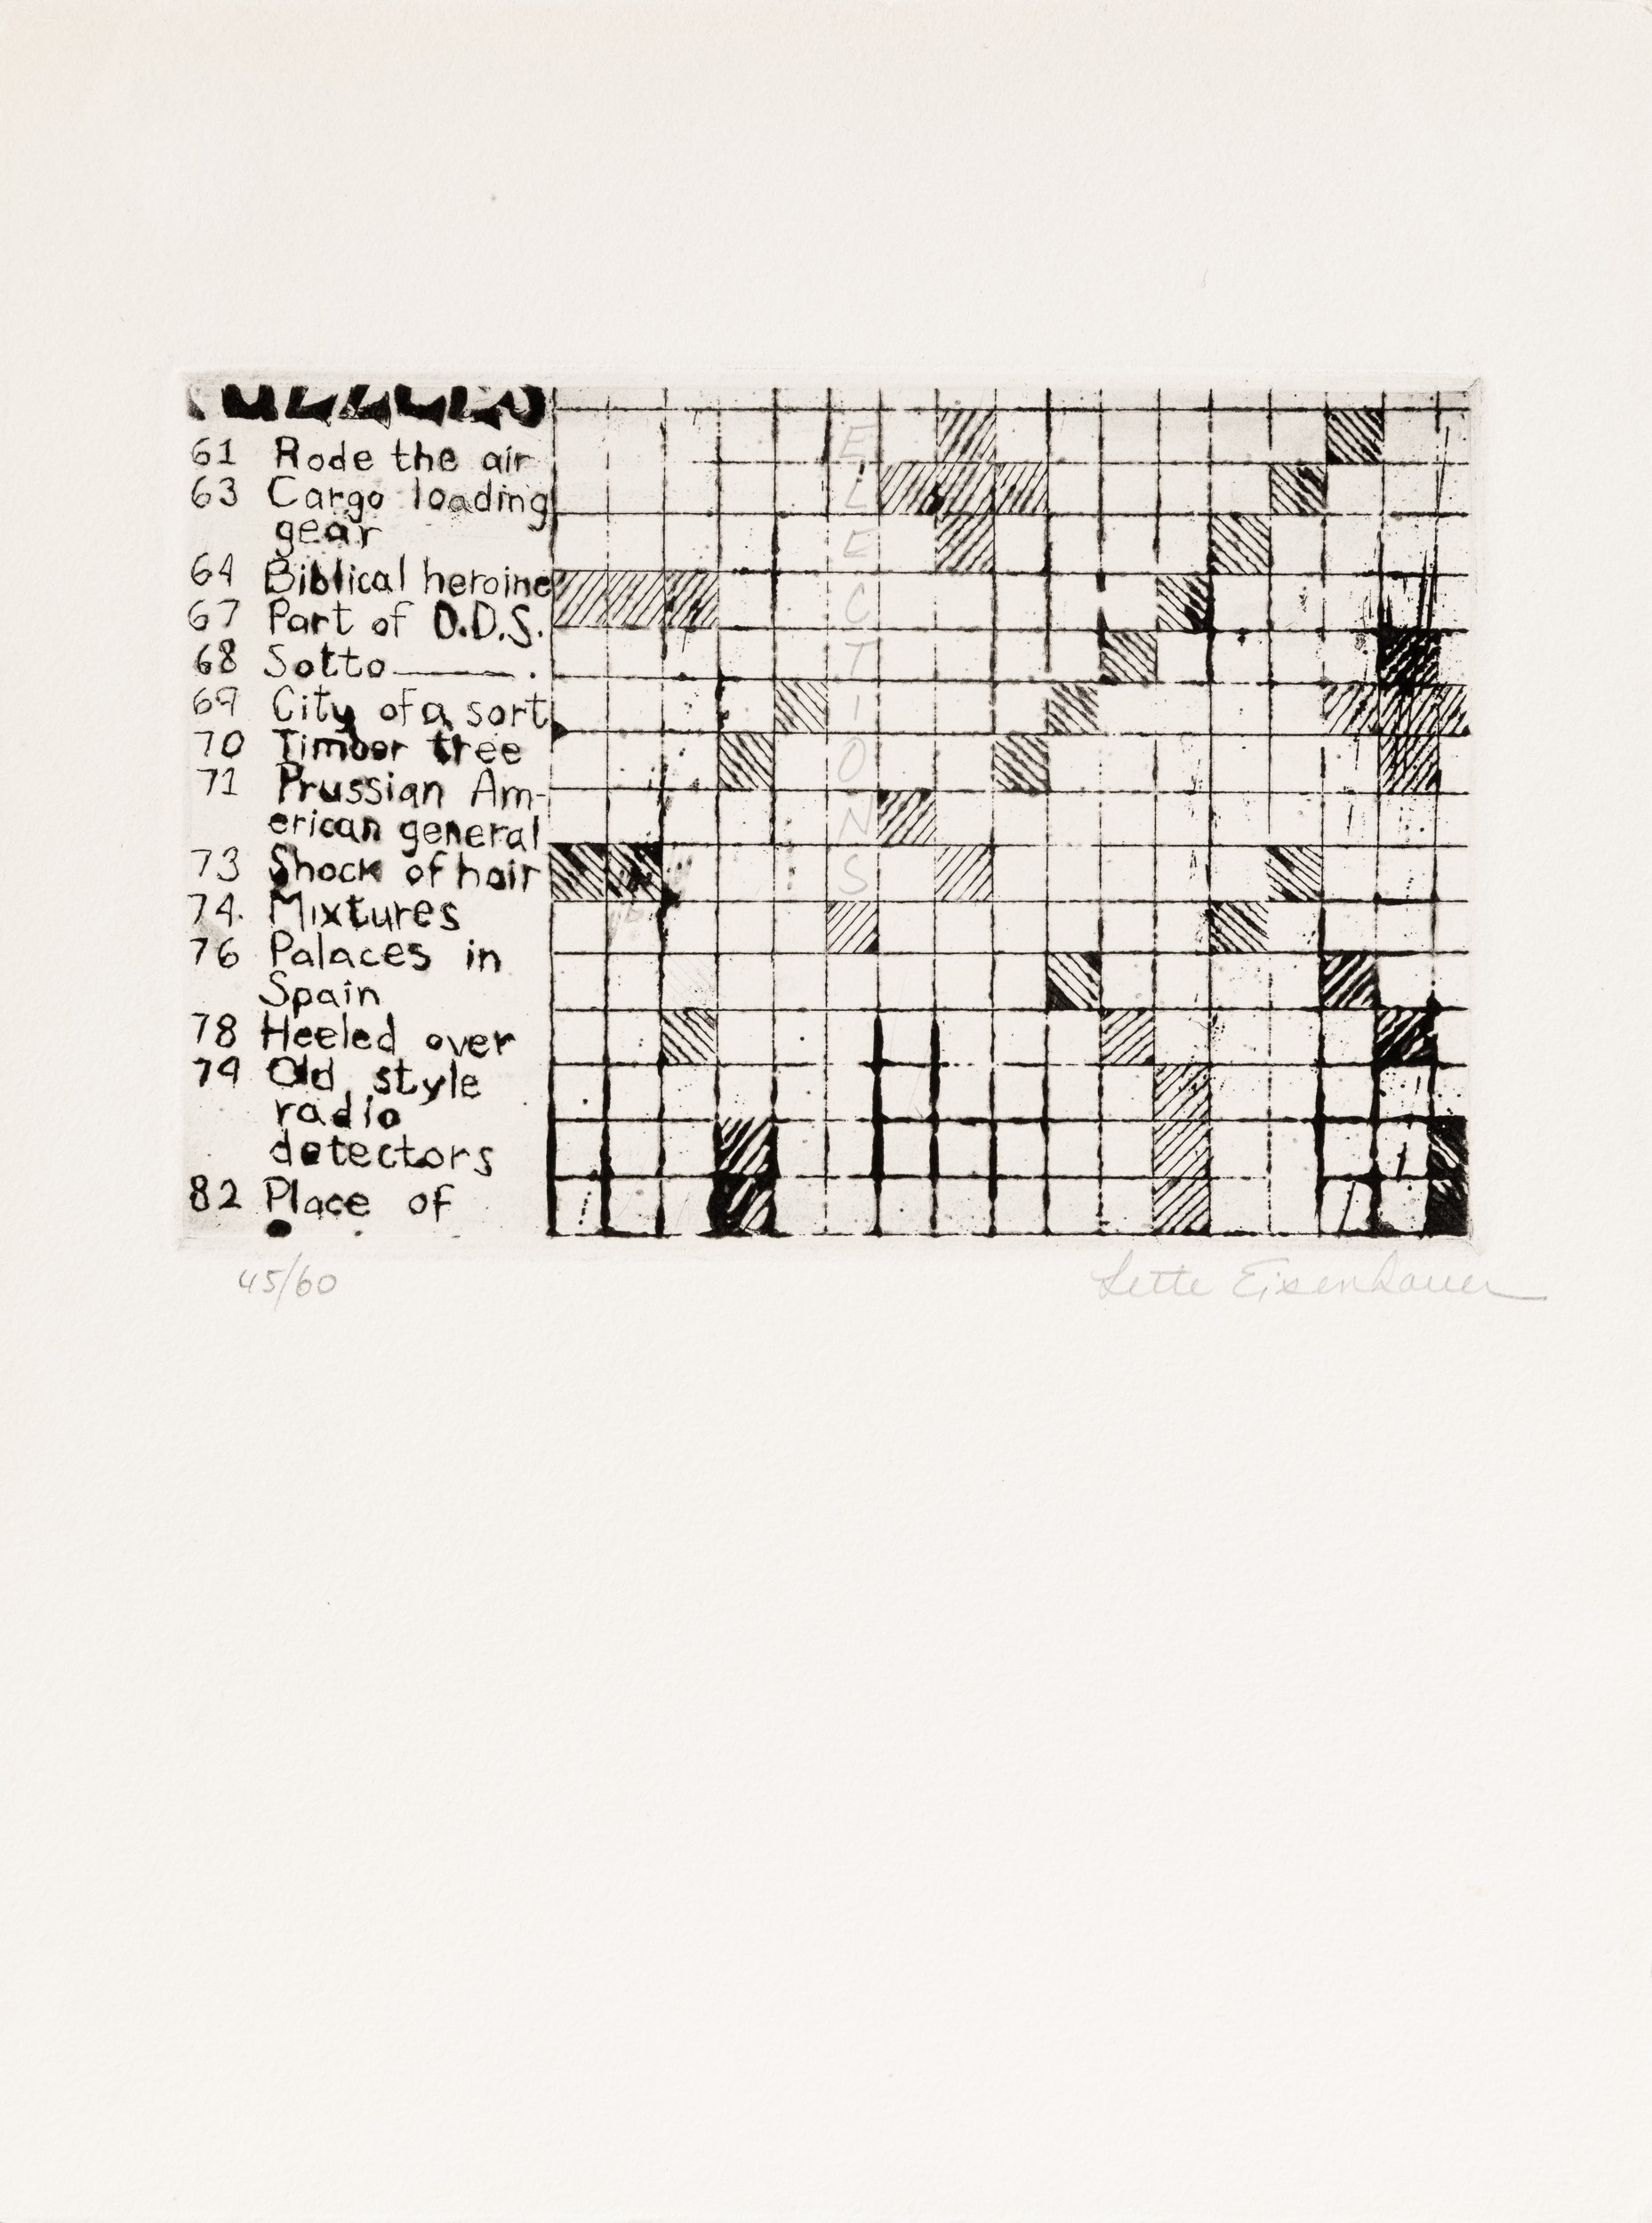 61 Rode the air
63 Cargo loading
gear
64 Biblical heroine
67 Part of O.D.S.
68 Sotto ———.
69 City of a sort
70 Timber tree
71 Prussian Am-
erican general
73 Shock of hair
74. Mixtures
76 Palaces in
Spain
78 Heeled over
79 Old style
radio
detectors
82 Place of
E
L
E
C
T
I
O
N
S
45/60
Lette Eisenhauer